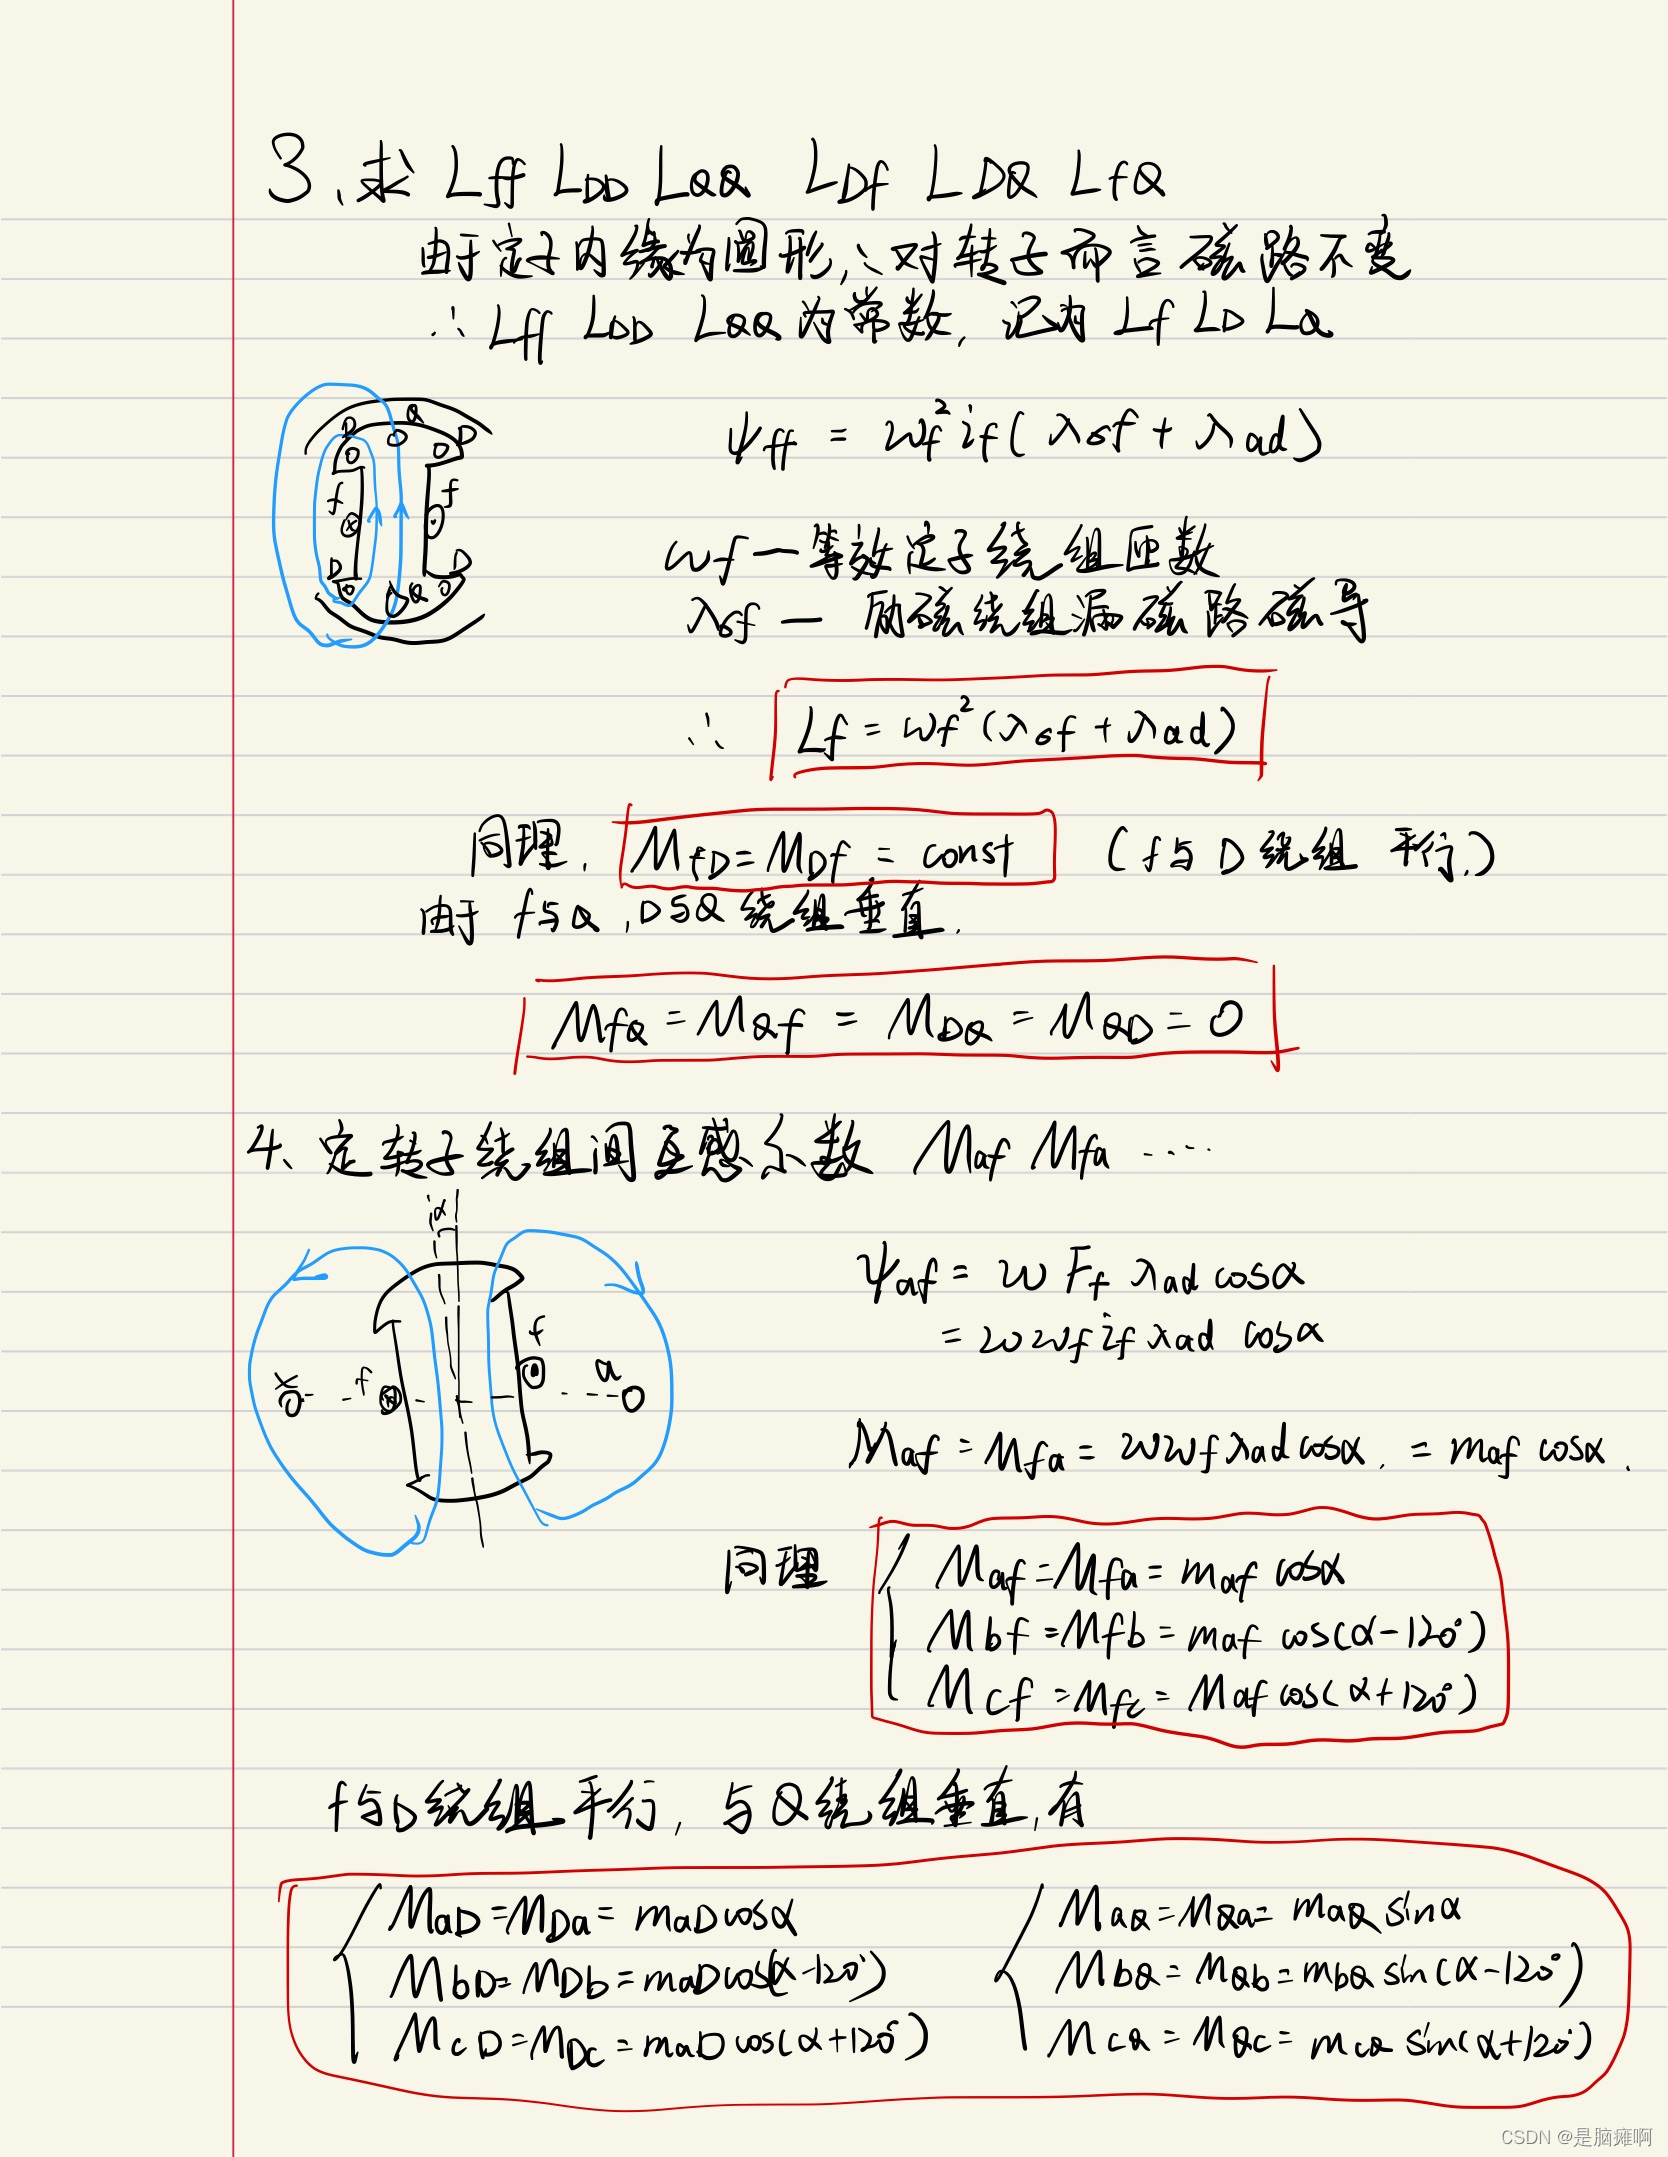 3、求 Lff LDD LQQ LDf LDQ LfQ
由于定子内缘为圆形,∴对转子而言磁路不变
∴ Lff LDD LQQ 为常数, 记为 Lf LD LQ
D Q D
f f
D Q D
ψff = wf² if ( λσf + λad )
wf — 等效定子绕组匝数
λσf — 励磁绕组漏磁路磁导
∴ Lf = wf² (λσf + λad)
同理, MfD = MDf = const ( f与D绕组 平行, )
由于 f与Q , D与Q 绕组垂直.
MfQ = MQf = MDQ = MQD = 0
4、定转子绕组间互感系数 Maf Mfa ....
α
x f f a
ψaf = w Ff λad cosα
= w wf if λad cosα
Maf = Mfa = wwf λad cosα. = maf cosα.
同理
Maf = Mfa = maf cosα
Mbf = Mfb = maf cos(α-120°)
Mcf = Mfc = Maf cos(α+120°)
f与D绕组平行, 与Q绕组垂直,有
MaD = MDa = maD cosα
MbD = MDb = maD cos(α-120°)
McD = MDc = maD cos(α+120°)
MaQ = MQa = maQ sinα
MbQ = MQb = mbQ sin(α-120°)
McQ = MQc = mcQ sin(α+120°)
CSDN @是脑瘫啊